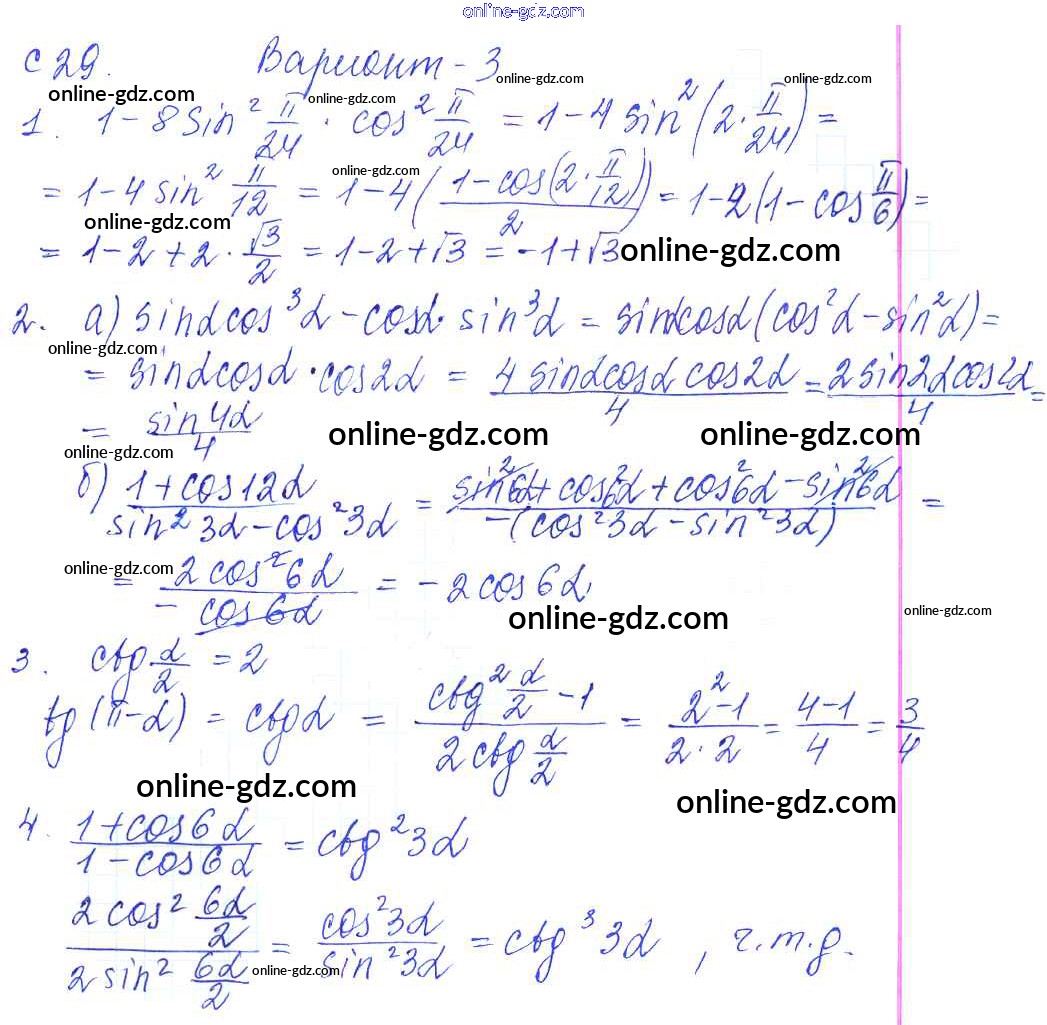 online-gdz.com
С 29. Вариант - 3
online-gdz.com online-gdz.com online-gdz.com online-gdz.com
1. 1 - 8 sin² π/24 · cos² π/24 = 1 - 4 sin² (2 · π/24) =
online-gdz.com
= 1 - 4 sin² π/12 = 1 - 4 ( (1 - cos(2 · π/12))/2 ) = 1 - 2 (1 - cos π/6) =
online-gdz.com
= 1 - 2 + 2 · √3/2 = 1 - 2 + √3 = -1 + √3
online-gdz.com
2. а) sinα cos³α - cosα · sin³α = sinα cosα (cos²α - sin²α) =
online-gdz.com
= sinα cosα · cos2α = (4 sinα cosα cos2α)/4 = (2 sin2α cos2α)/4 =
= sin4α/4
online-gdz.com online-gdz.com online-gdz.com
б) (1 + cos12α)/(sin²3α - cos²3α) = (sin²6α + cos²6α + cos²6α - sin²6α)/(-(cos²3α - sin²3α)) =
online-gdz.com
= (2 cos²6α)/(-cos6α) = -2 cos6α
online-gdz.com online-gdz.com
3. ctg α/2 = 2
tg (π-α) = ctgα = (ctg² α/2 - 1)/(2 ctg α/2) = (2² - 1)/(2 · 2) = (4 - 1)/4 = 3/4
online-gdz.com online-gdz.com
4. (1 + cos6α)/(1 - cos6α) = ctg²3α
(2 cos² 6α/2)/(2 sin² 6α/2) = cos²3α/sin²3α = ctg³ 3α, ч.т.д.
online-gdz.com